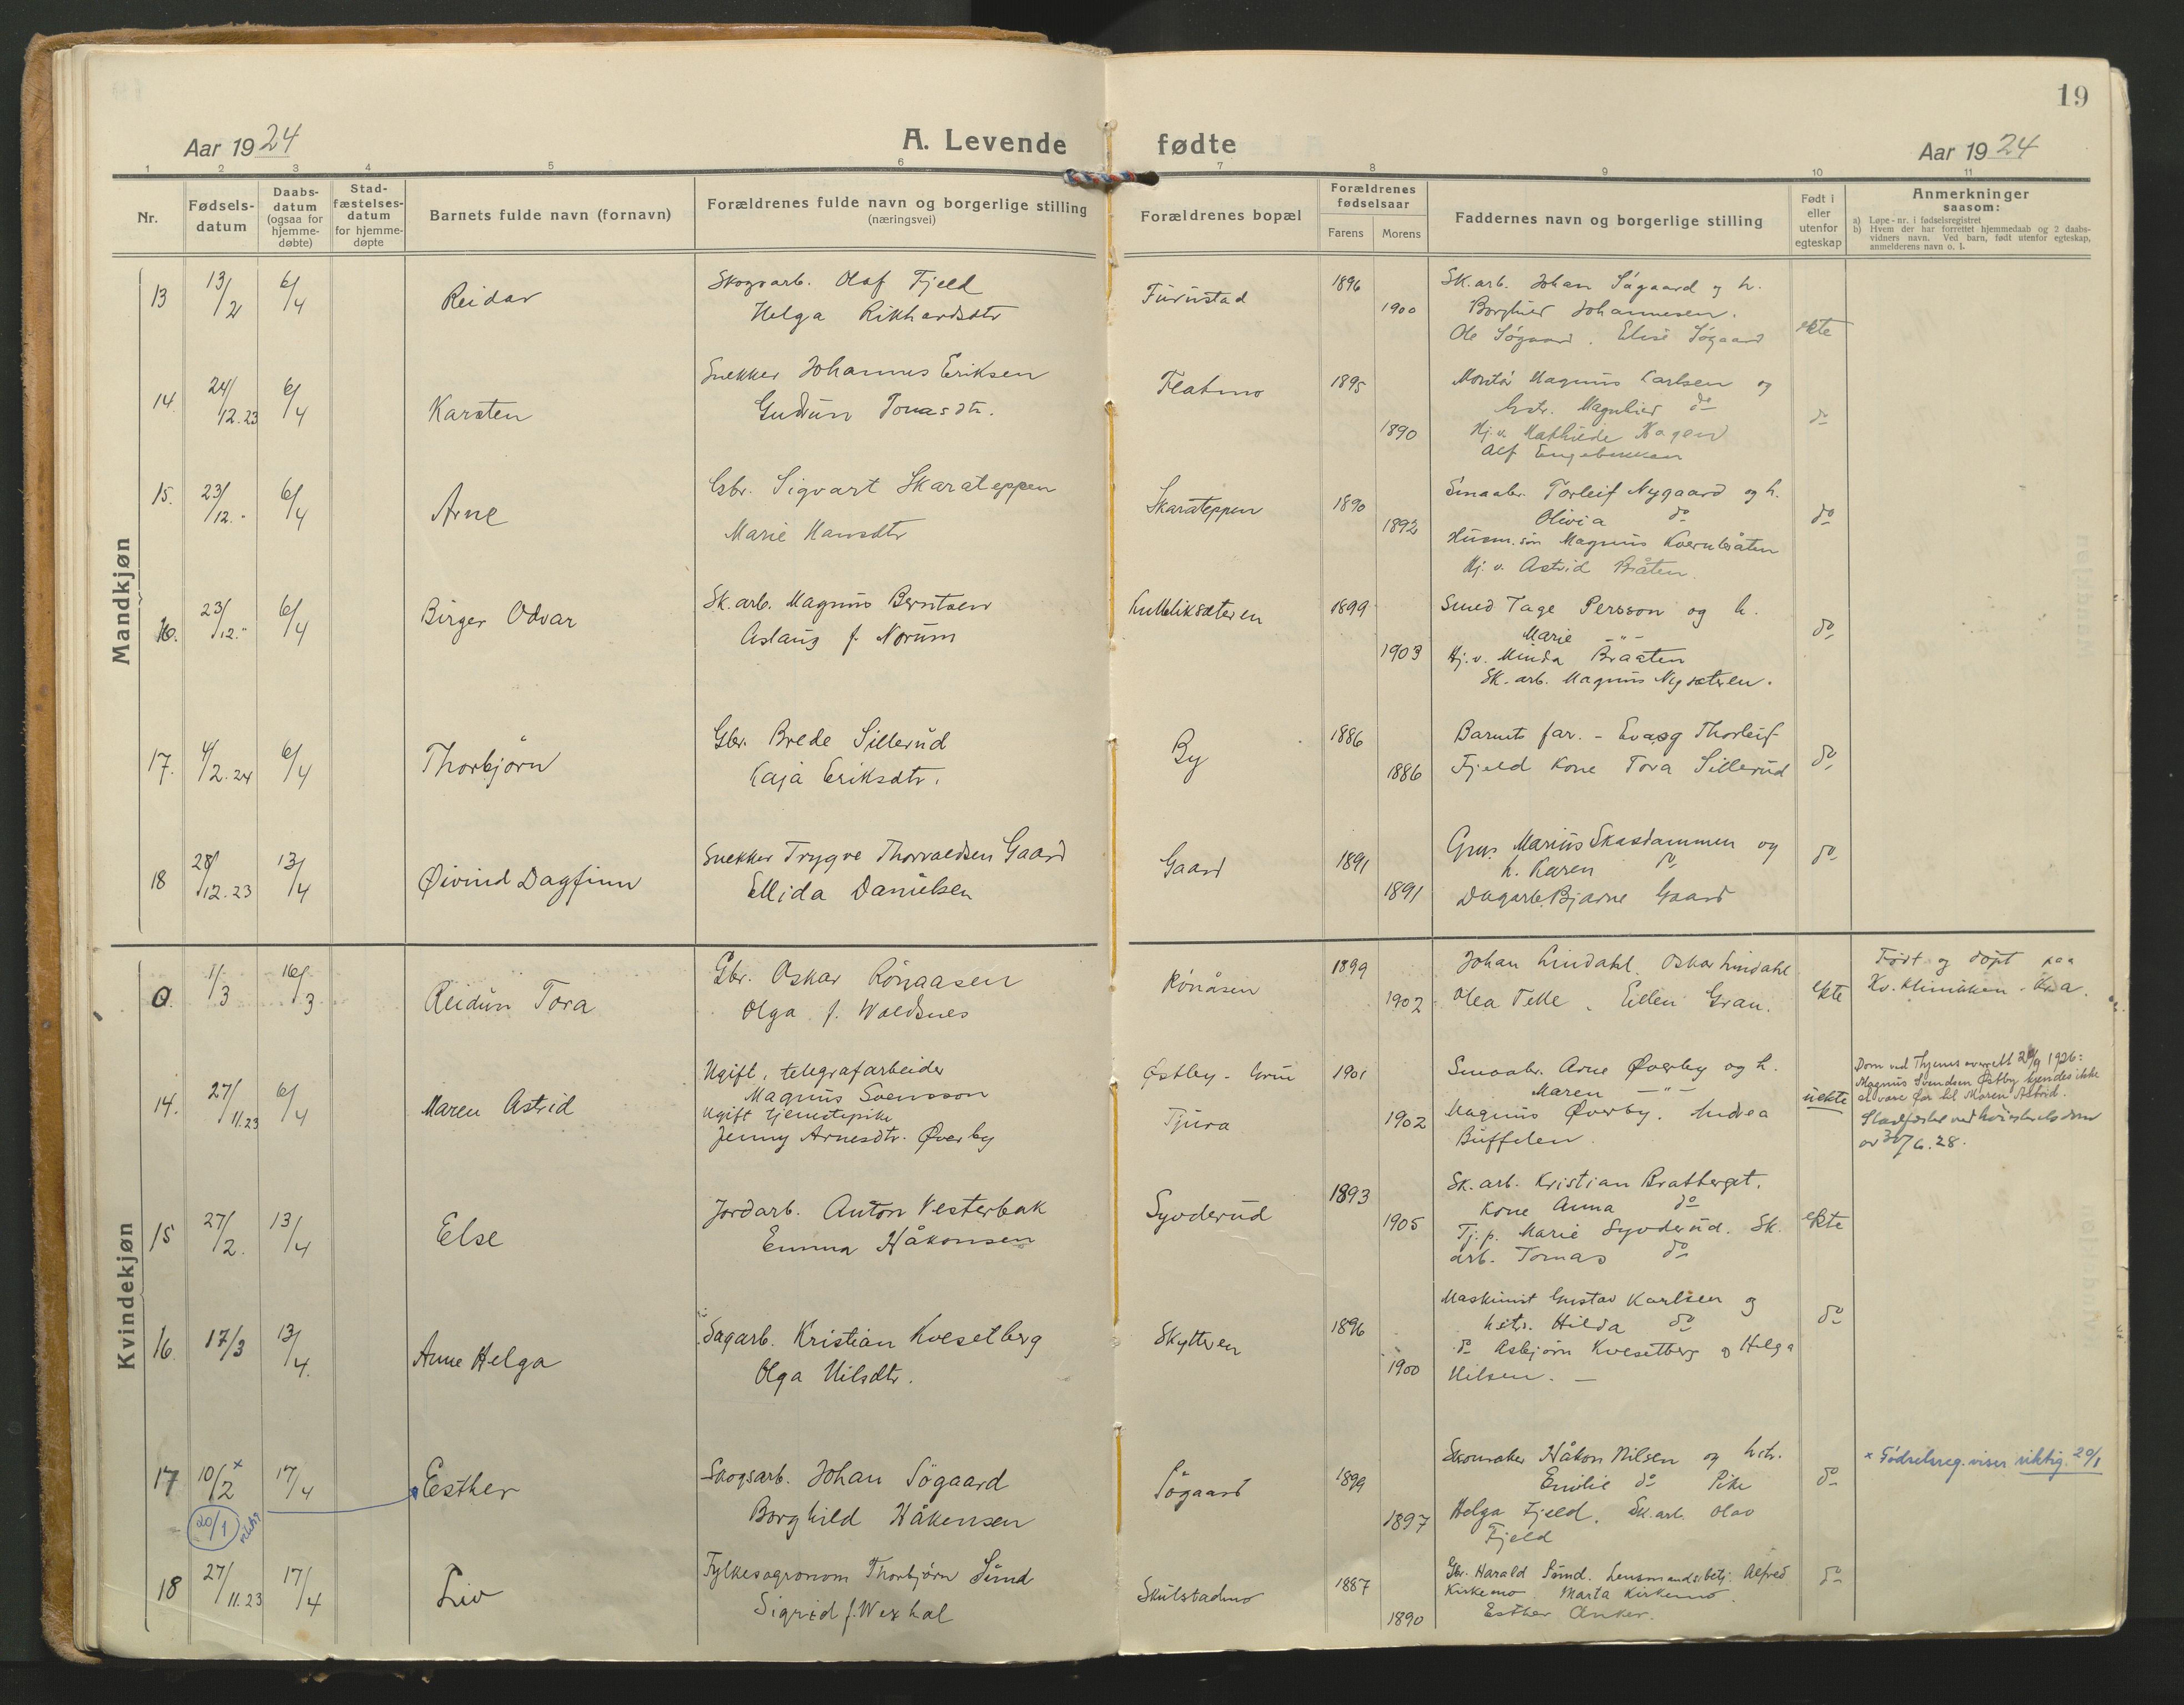 19
Aar 1924
A. Levende fødte
Aar 1924
1 2 3 4 5 6 7 8 9 10 11
Nr.
Fødsels-
datum
Daabs-
datum
(ogsaa for
hjemme-
døbte)
Stad-
fæstelses-
datum
for hjemme-
døpte
Barnets fulde navn (fornavn)
Forældrenes fulde navn og borgerlige stilling
(næringsvei)
Forældrenes bopæl
Forældrenes
fødselsaar
Farens Morens
Faddernes navn og borgerlige stilling
Født i
eller
utenfor
egteskap
Anmerkninger
saasom:
a) Løpe-nr. i fødselsregistret
b) Hvem der har forrettet hjemmedaab og 2 daabs-
vidners navn. Ved barn, født utenfor egteskap,
anmelderens navn o. l.
Mandkjøn
13 13/2 6/4 Reidar
Skogvarb. Olaf Fjeld
Helga Rikhardsdtr
Furustad
1896
1900
Sk.arb. Johan Søgaard og h.
Borghild Johannesen.
Ole Søgaard. Elise Søgaard
ekte
14. 24/12.23 6/4 Karsten
Snekker Johannes Eriksen
Gudrun Jonasdtr.
Flatmo
1895
1890
Montør Magnus Carlsen og
hstr. Magnhild do
Hj.v. Mathilde Hagen
Alf Engebakken
do
15. 23/12.- 6/4 Arne
Gbr. Sigvart Skarateppen
Marie Hansdtr
Skarateppen
1890
1892
Smaabr. Torleif Nygaard og h.
Olivia do
Husm.søn Magnus Kvernbråten
Hj. v. Astrid Bråten.
do
16. 23/12.- 6/4 Birger Odvar
Sk.arb. Magnus Berntsen
Aslaug f. Norum
1899
1903
Smed Tage Persson og h.
Marie -"-
Hj.v. Minda Braaten
Sk.arb. Magnus Nysæteren.
do
17. 4/2.24 6/4 Thorbjørn
Gbr. Brede Sillerud
Kaja Eriksdtr.
By
1886
1886
Barnets far. - Eva og Thorleif
Fjeld Kone Tora Sillerud
do
18 28/12.23 13/4 Øivind Dagfinn
Snekker Trygve Thorvaldsen Gaard
Ellida Danielsen
Gaard
1891
1891
Grv. Marius Skasdammen og
h. Karen do
Dagarb. Bjarne Gaard
do
Kvindekjøn
0. 1/3 16/3 Reidun Tora
Gbr. Oskar Rønaasen
Olga f. Woldsnes
Rønåsen
1899
1902
Johan Lindahl. Oskar Lindahl
Olea Telle. Ellen Gran.
ekte
Født og døpt paa
Kv. klinikken. Kra.
14. 27/11.23 6/4 Maren Astrid
Ugift, telegrafarbeider
Magnus Svensson
Ugift tjenestepike
Jenny Arnesdtr. Øverby
Østby - Grue
Tjura
1901
1902
Smaabr. Arne Øverby og h.
Maren -"-
Magnus Øverby. Andrea
Buffelen.
uekte
Dom ved Thjems overrett 24/9 1926:
Magnus Svendsen Østby kjendes ikke
at være far til Maren Astrid.
Stadfestet ved høiesteretsdom
av 30/6.28.
15 27/2. 13/4 Else
Jordarb. Anton Vesterbak
Emma Håkonsen
Syvderud
1893
1905
Sk.arb. Kristian Bratberget.
Kone Anna do
Tj.p. Marie Syvderud. Sk.
arb. Tomas do
ekte
16. 17/3 13/4. Anne Helga
Sagarb. Kristian Kvesetberg
Olga Nilsdtr.
Skytteren
1896
1900
Maskinist Gustav Karlsen og
hstr. Hilda do
do Asbjørn Kvesetberg og Helga
Nilsen. -
do
17 10/2 x 17/4 Esther
20/1 riktig
Skogsarb. Johan Søgaard
Borghild Håkensen
Søgaard
1899
1897
Skomaker Håkon Nilsen og hstr.
Emilie do Pike
Helga Fjeld. Sk.arb. Olav
Fjeld
do
x Fødselsreg. viser riktig. 20/1
18 27/11.23 17/4 Liv
Fylkesagronom Thorbjørn Sund
Sigrid f. Wexhal
Skulstadmo
1887
1890
Gbr. Harald Sund. Lensmandsbetj. Alfred
Kirkemo Marta Kirkemo.
Esther Anker.
do